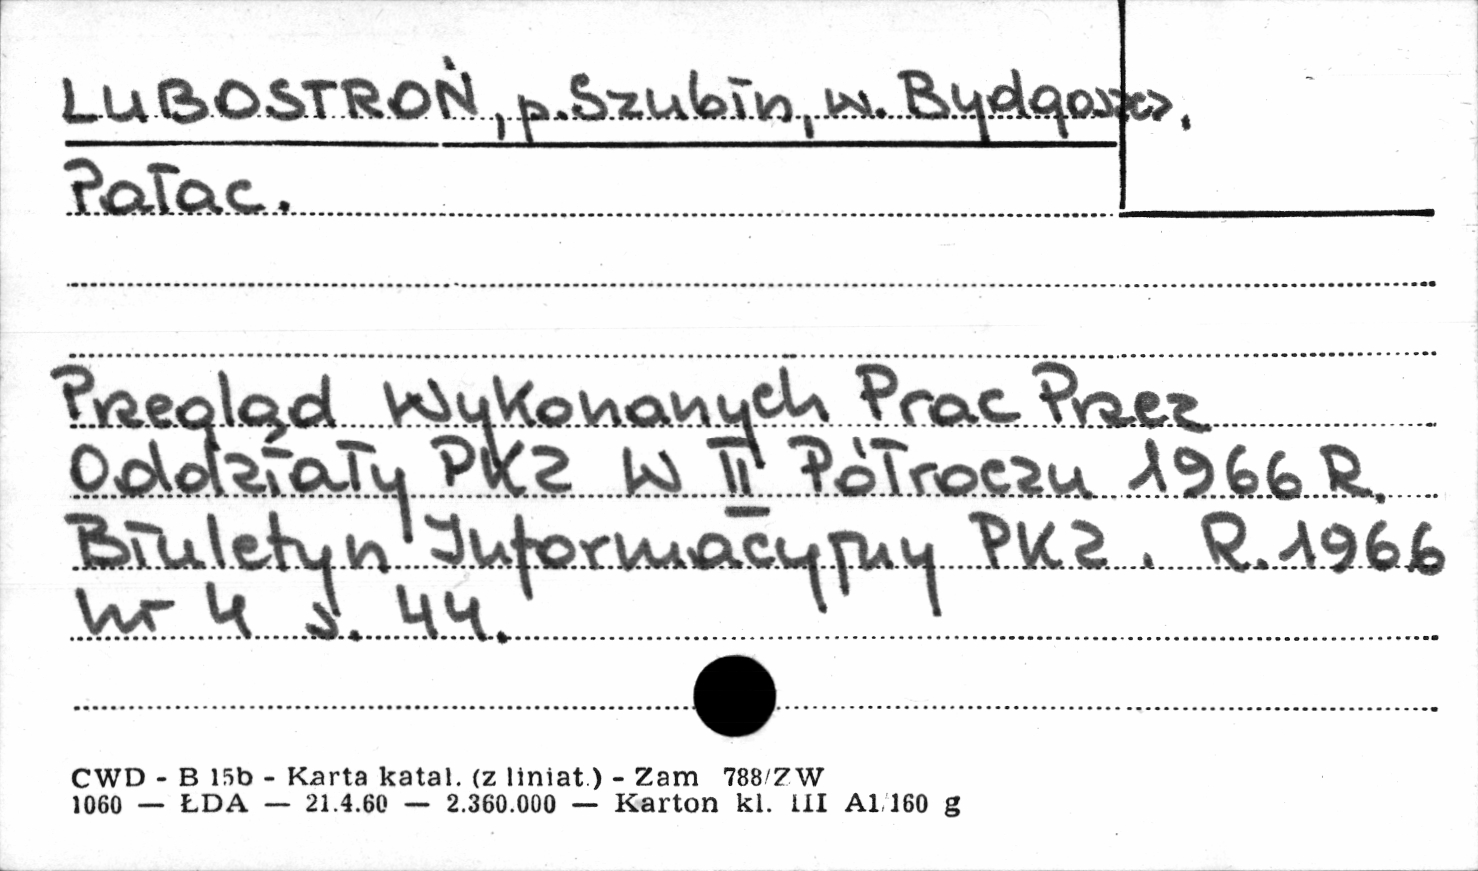 LUBOSTROŃ, p. Szubin, w. Bydgoszcz.
Pałac.
Przegląd Wykonanych Prac Przez
Oddziały PKZ W II Półroczu 1966 R.
Biuletyn Informacyjny PKZ. R. 1966
nr 4 s. 44.
CWD - B 15b - Karta katal. (z liniat.) - Zam 788/ZW
1060 — ŁDA — 21.4.60 — 2.360.000 — Karton kl. III A1/160 g